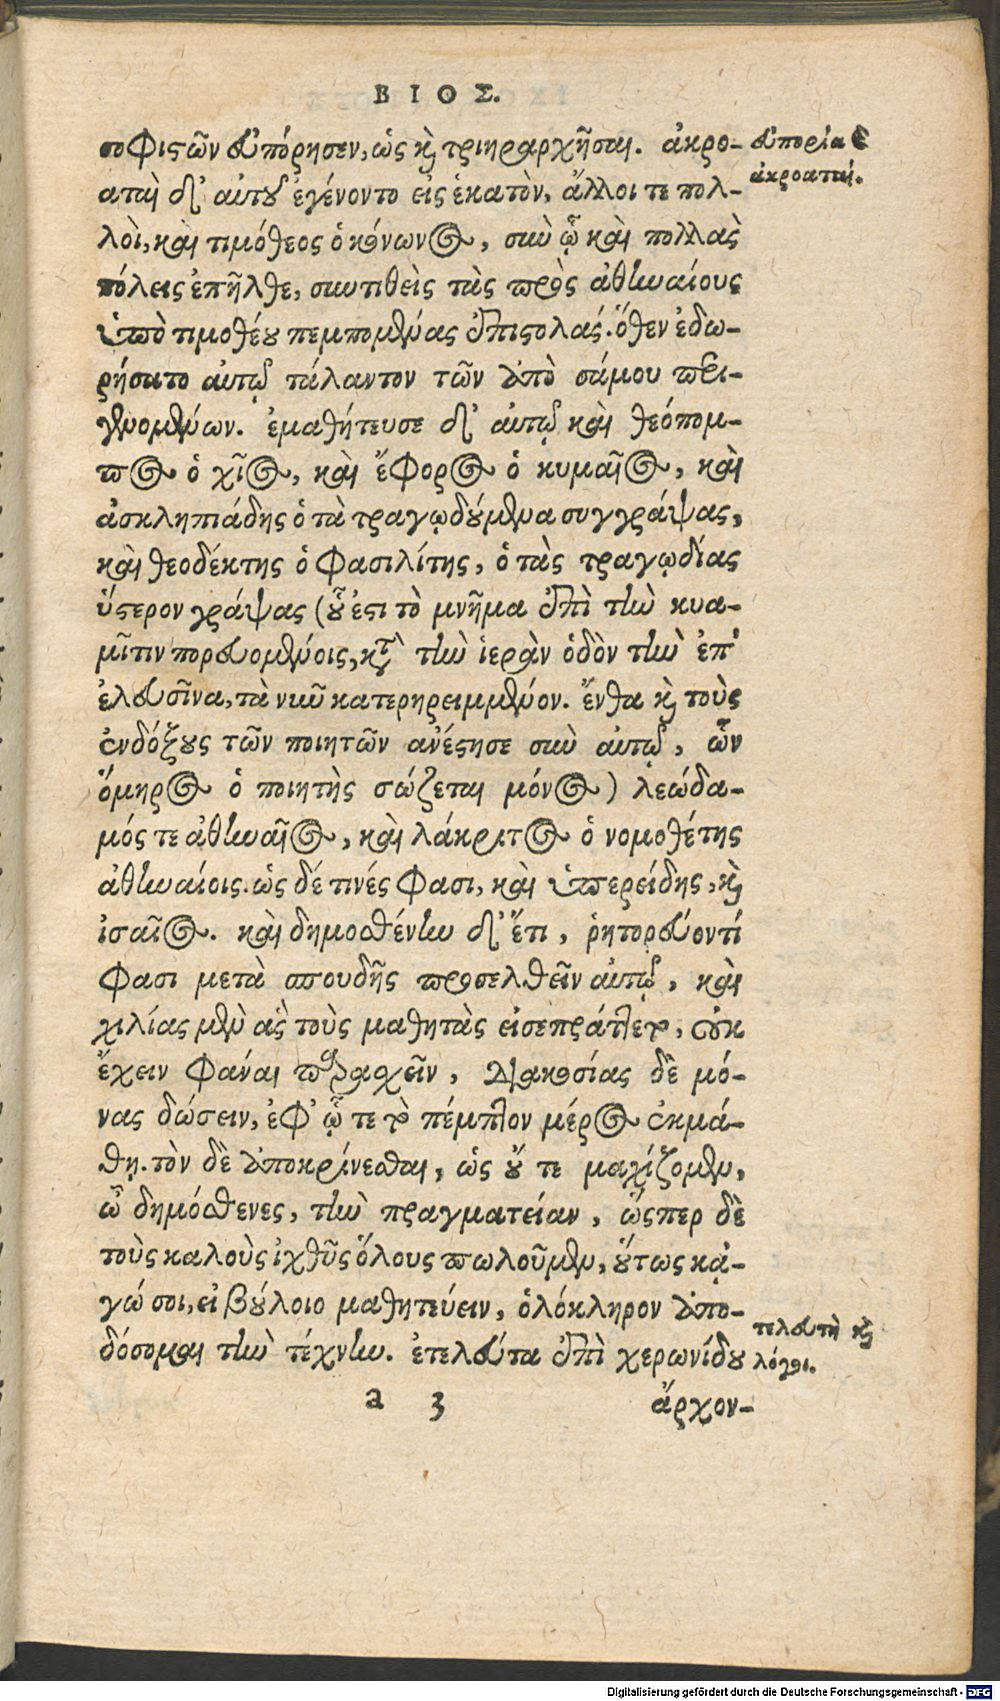 ΒΙΟΣ.
σοφιστῶν εὐπόρησεν, ὡς καὶ τριηραρχῆσαι. ἀκρο-
αταὶ δ᾽ αὐτοῦ ἐγένοντο εἰς ἑκατὸν, ἄλλοι τε πολ-
λοὶ, καὶ τιμόθεος ὁ κόνωνος, σὺν ᾧ καὶ πολλὰς
πόλεις ἐπῆλθε, συντιθεὶς τὰς πρὸς ἀθηναίους
ὑπὸ τιμοθέου πεμπομένας ἐπιστολάς. ὅθεν ἐδω-
ρήσατο αὐτῷ τάλαντον τῶν ἀπὸ σάμου περι-
γενομένων. ἐμαθήτευσε δ᾽ αὐτῷ καὶ θεόπομ-
πος ὁ χῖος, καὶ ἔφορος ὁ κυμαῖος, καὶ
ἀσκληπιάδης ὁ τὰ τραγῳδούμενα συγγράψας,
καὶ θεοδέκτης ὁ φασιλίτης, ὁ τὰς τραγῳδίας
ὕστερον γράψας (οὗ ἐστι τὸ μνῆμα ἐπὶ τὴν κυα-
μῖτιν πορευομένοις, κατὰ τὴν ἱερὰν ὁδὸν τὴν ἐπ᾽
ἐλευσῖνα, τὰ νῦν κατερηρειμμένον. ἔνθα καὶ τοὺς
ἐνδόξους τῶν ποιητῶν ἀνέστησε σὺν αὐτῷ, ὧν
ὅμηρος ὁ ποιητὴς σώζεται μόνος) λεώδα-
μός τε ἀθηναῖος, καὶ λάκριτος ὁ νομοθέτης
ἀθηναίοις. ὡς δέ τινές φασι, καὶ ὑπερείδης, καὶ
ἰσαῖος. καὶ δημοσθένην δ᾽ ἔτι, ῥητορεύοντί
φασι μετὰ σπουδῆς προσελθεῖν αὐτῷ, καὶ
χιλίας μὲν ἃς τοὺς μαθητὰς εἰσεπράττετο, οὐκ
ἔχειν φάναι παρασχεῖν, διακοσίας δὲ μό-
νας δώσειν, ἐφ᾽ ᾧ τε τὸ πέμπτον μέρος ἐκμά-
θῃ. τὸν δὲ ἀποκρίνεσθαι, ὡς οὔ τε μαχίζομεν,
ὦ δημόσθενες, τὴν πραγματείαν, ὥσπερ δὲ
τοὺς καλοὺς ἰχθῦς ὅλους πωλοῦμεν, οὕτως κᾀ-
γώ σοι, εἰ βούλοιο μαθητεύειν, ὁλόκληρον ἀπο-
δόσομαι τὴν τέχνην. ἐτελεύτα ἐπὶ χερωνίδου
a 3
ἄρχον-
εὐπορία καὶ
ἀκροαταί.
τελευτὴ καὶ
λόγοι.
Digitalisierung gefördert durch die Deutsche Forschungsgemeinschaft - DFG